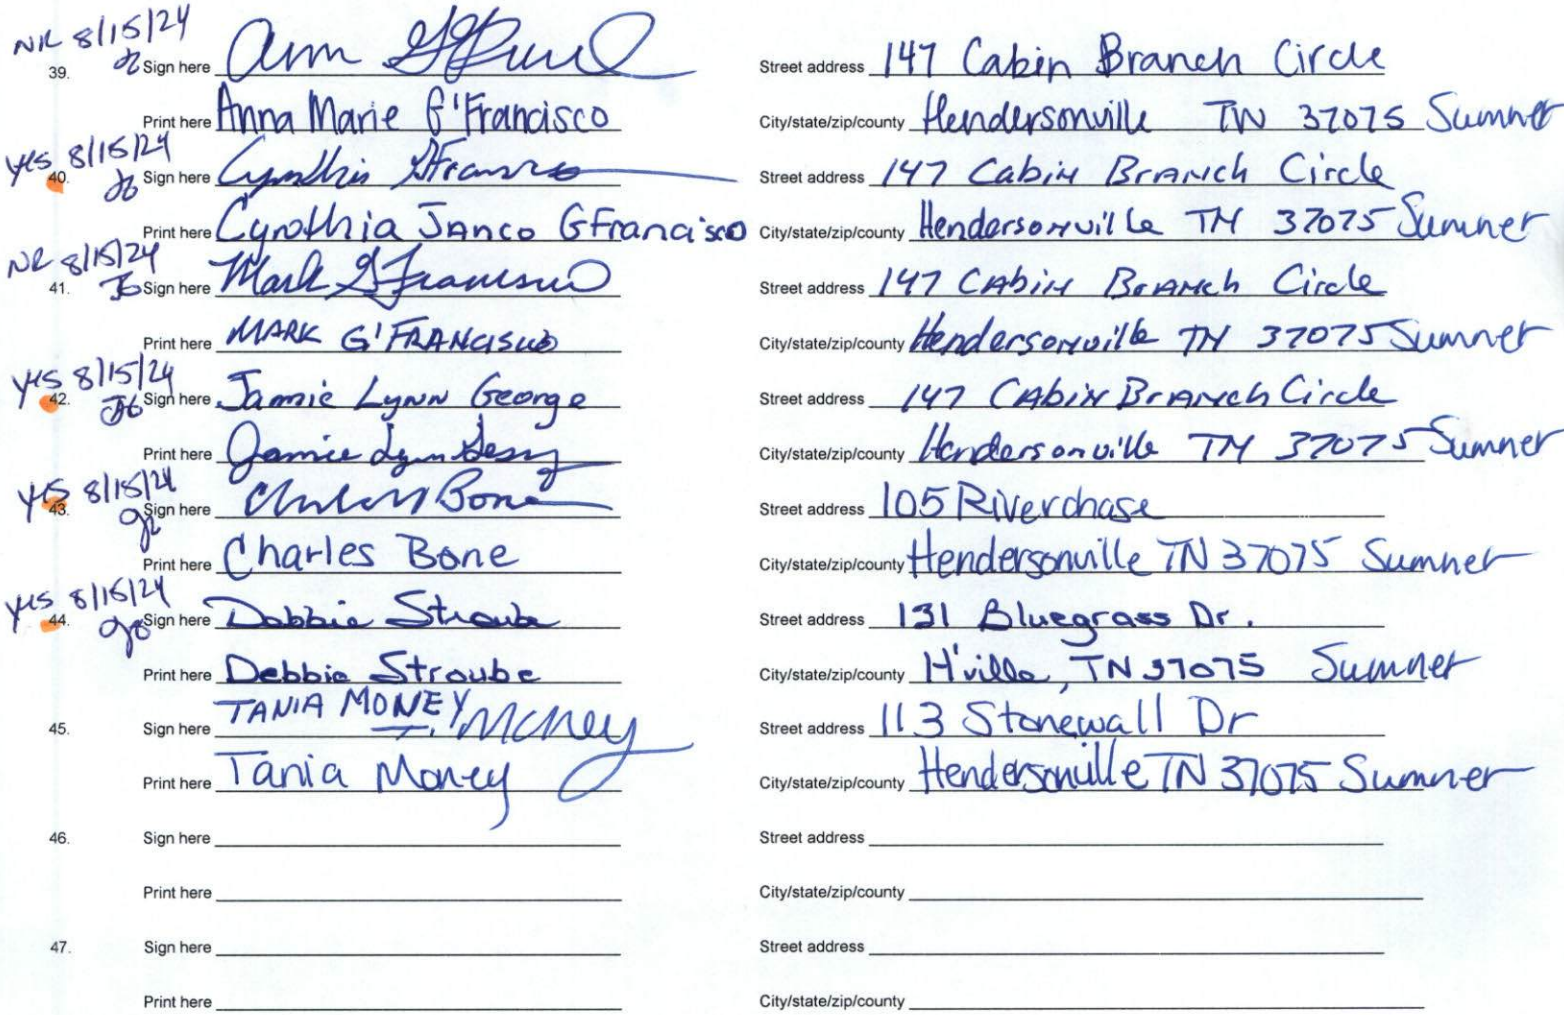 NR 8/15/24
39. Sign here Ann G'Franc Street address 147 Cabin Branch Circle
Print here Anna Marie G'Francisco City/state/zip/county Hendersonville TN 37075 Sumner
yes 8/15/24
40. Sign here Cynthia GFrancisco Street address 147 Cabin Branch Circle
Print here Cynthia Janco GFrancisco City/state/zip/county Hendersonville TN 37075 Sumner
NR 8/15/24
41. Sign here Mark G'Francisco Street address 147 Cabin Branch Circle
Print here MARK G'FRANCISCO City/state/zip/county Hendersonville TN 37075 Sumner
yes 8/15/24
42. Sign here Jamie Lynn George Street address 147 Cabin Branch Circle
Print here Jamie Lynn City/state/zip/county Hendersonville TN 37075 Sumner
yes 8/15/24
43. Sign here Charles Bone Street address 105 Riverchase
Print here Charles Bone City/state/zip/county Hendersonville TN 37075 Sumner
yes 8/15/24
44. Sign here Debbie Stroube Street address 131 Bluegrass Dr.
Print here Debbie Stroube City/state/zip/county H'ville, TN 37075 Sumner
45. Sign here TANIA MONEY T. Money Street address 113 Stonewall Dr
Print here Tania Money City/state/zip/county Hendersonville TN 37075 Sumner
46. Sign here Street address
Print here City/state/zip/county
47. Sign here Street address
Print here City/state/zip/county